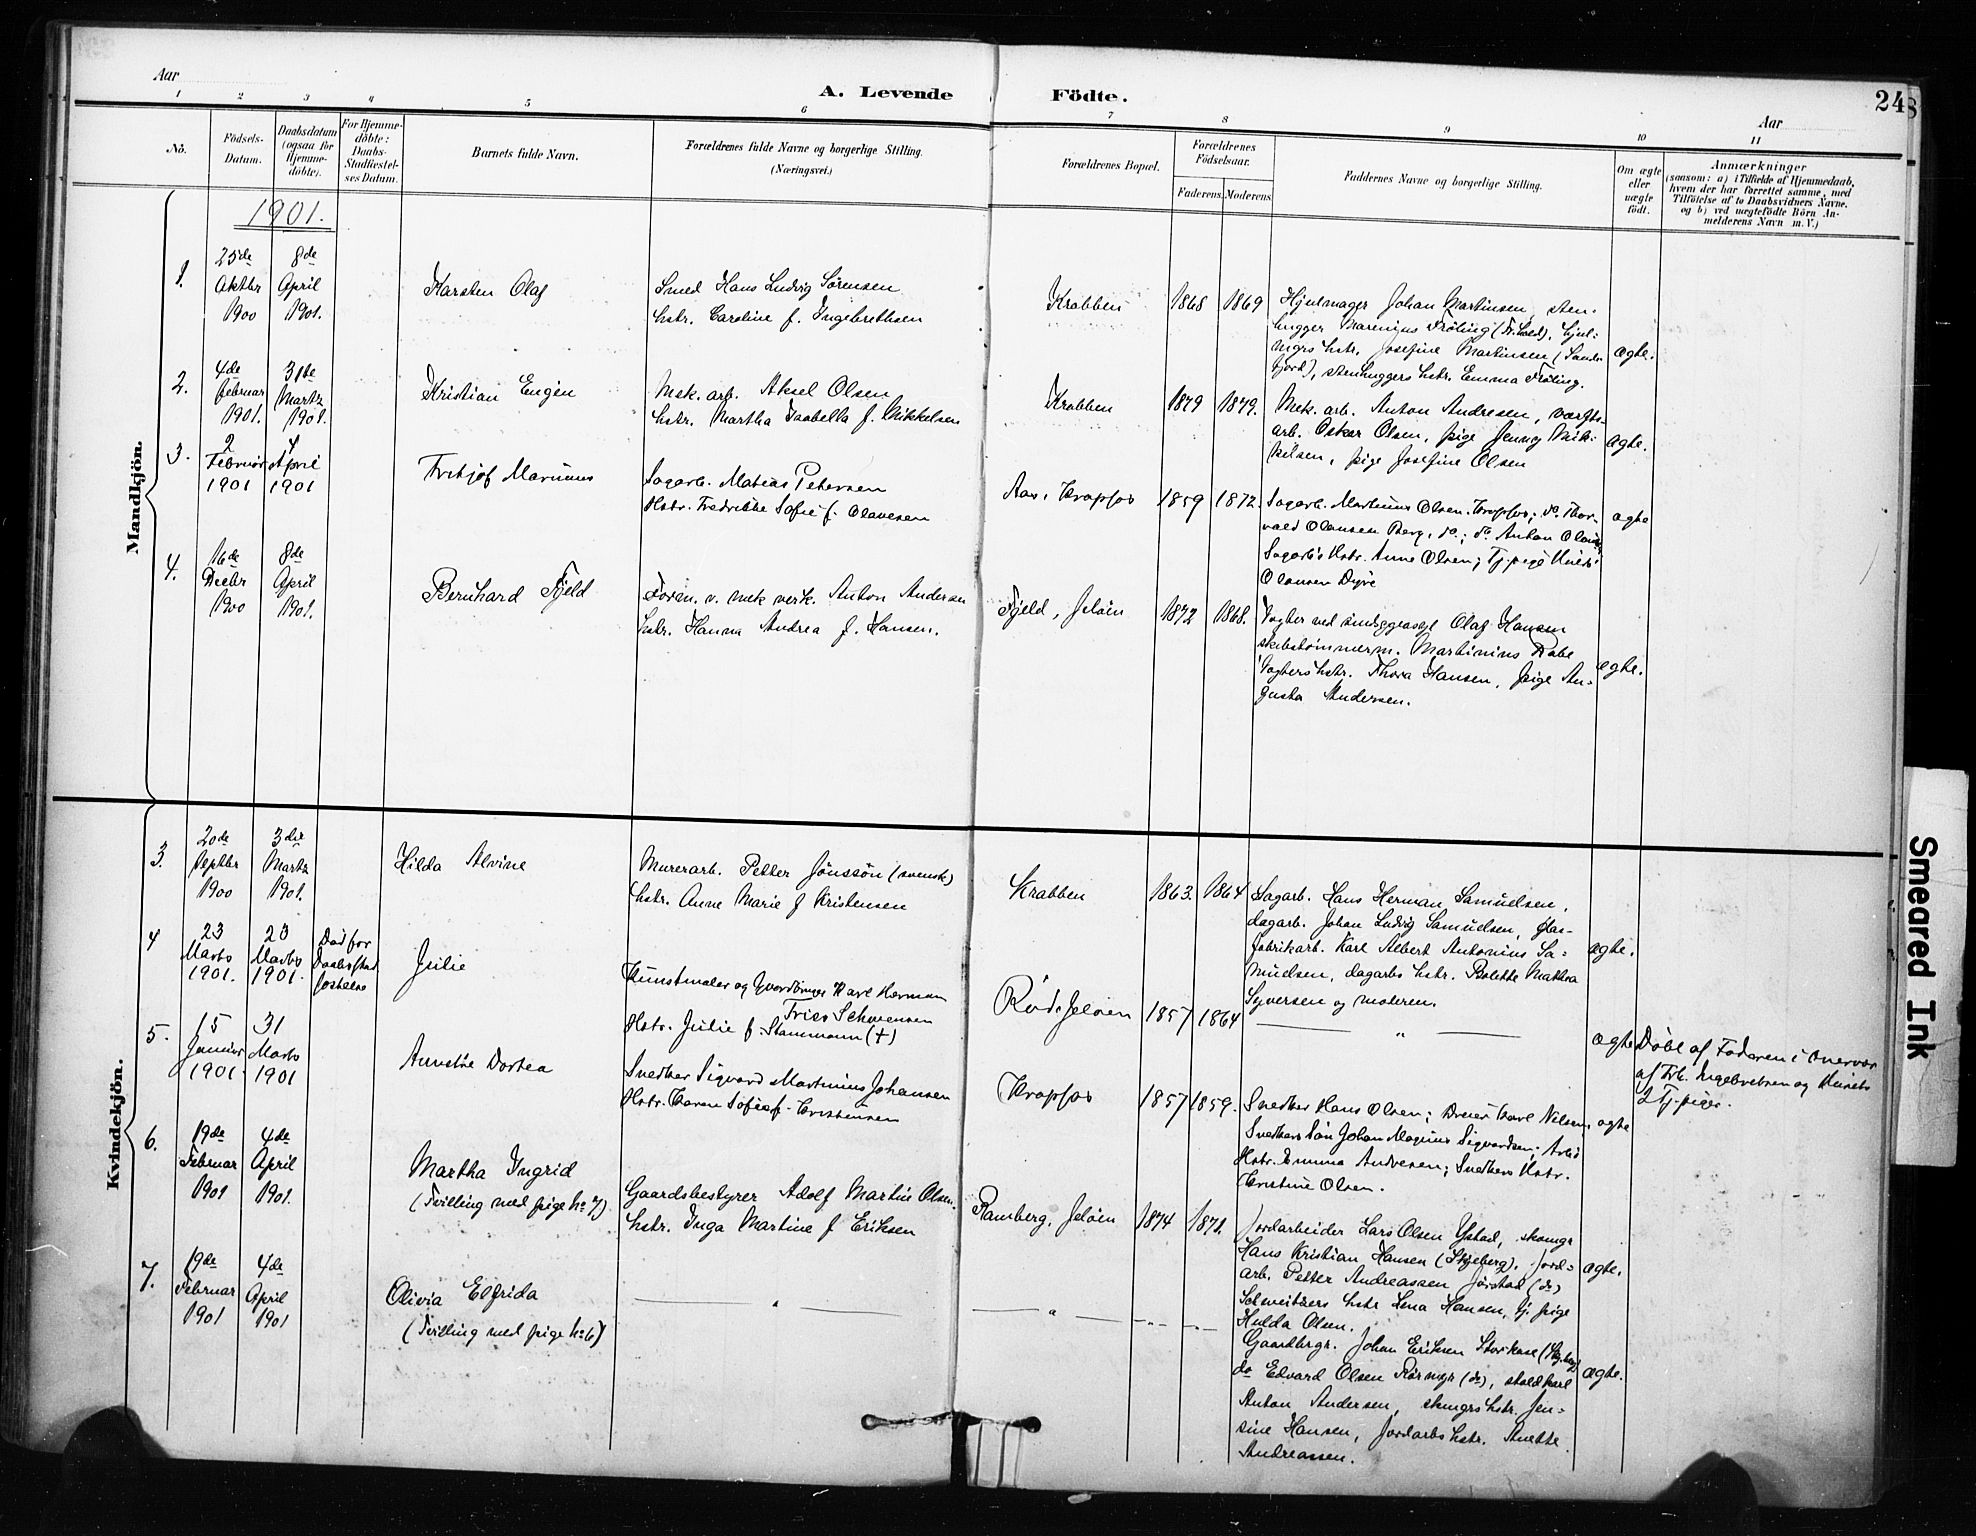 Aar
A. Levende Födte.
24
8
Aar
1 2 3 4 5 6 7 8 9 10 11
No.
Födsels-
Datum.
Daabsdatum
(ogsaa for
Hjemme-
döbte).
For Hjemme-
döbte:
Daabs-
Stadfæstel-
ses Datum.
Barnets fulde Navn.
Forældrenes fulde Navne og borgerlige Stilling.
(Næringsvei.)
Forældrenes Bopæl.
Forældrenes
Födselsaar.
Faderens.
Moderens
Faddernes Navne og borgerlige Stilling.
Om ægte
eller
uægte
födt.
Anmærkninger
(saasom: a) i Tilfælde af Hjemmedaab,
hvem der har forrettet samme, med
Tilföielse af to Daabsvidners Navne.
og b) ved uægtefödte Börn An-
melderens Navn m. V.)
1901.
Mandkjön.
1.
25de
Oktbr
1900
8de
April
1901.
Karsten Olaf
Smed Hans Ludvig Sørensen
hstr. Caroline f. Ingebrethsen
Krabben
1868
1869
Hjulmager Johan Martinsen, sten-
hugger Marenius Frøling (Fr.hald), hjul-
mgrs hstr. Josefine Martinsen (Sande-
fjord), stenhuggers hstr. Emma Frøling.
ægte.
2.
4de
Februar
1901.
31te
Marts
1901.
Kristian Eugen
Mek. arb. Aksel Olsen
hstr. Martha Isabella f. Mikkelsen
Krabben
1879
1879.
Mek. arb. Anton Andresen, værfts-
arb. Oskar Olsen, pige Jenny Mik-
kelsen, pige Josefine Olsen
ægte.
3.
2
Februar
1901
4
April
1901
Fritjof Marinius
Sagarb. Matias Petersen
Hstr. Fredrikke Sofie f. Olavesen
Aas, Krapfos
1859
1872
Sagarb. Martinus Olsen, Krapfos; do. Thor-
vald Olausen Berg, do.; do. Anton Olsen
Sagarb's Hstr. Anne Olsen; Tj.pige
Olausen Dyre
ægte
4.
16de
Decbr
1900
8de
April
1901.
Bernhard Fjeld
Form. v. mek verk. Anton Andersen
hstr. Hanna Andrea f. Hansen.
Fjeld, Jeløen
1872
1868.
Vogter ved sindsygeasyl Olaf Hansen
skibstømmerm. Martinius Dabe
Vogters hstr. Thora Hansen, pige Au-
gusta Andersen.
ægte.
Kvindekjön.
3.
20de
Septbr
1900
3die
Marts
1901.
Hilda Alvine
Murerarb. Petter Jönssön (svensk)
hstr. Anne Marie f Kristensen
Krabben
1863.
1864
Dagarb. Hans Herman Samuelsen,
dagarb. Johan Ludvig Samuelsen, Glas-
fabrikarb. Karl Albert Antonius Sa-
muelsen, dagarbs hstr. Bolette Mathea
Syversen og moderen.
ægte.
4
23
Marts
1901.
23
Marts
1901.
Død før
Daabsstad
fæstelse
Julie
Kunstmaler og Gaardbruger Karl Herman
Friis Schwensen
Hstr. Julie f. Stammann (+)
Rød, Jeløen
1857
1864
"
ægte
Døbt af Faderen i Nærvær
af Frk. Ingebretsen og Husets
2 Tj.piger.
5.
15
Januar
1901.
31
Marts
1901
Annette Dortea
Snedker Sigvard Martinius Johansen
Hstr. Karen Sofie f. Kristensen
Krapfos
1857
1859.
Snedker Hans Olsen; Dreier Karl Nilsen,
Snedkers Søn Johan Magnus Sigvardsen; Arbs
Hstr. Emma Andresen; Snedkers Hstr.
Kristine Olsen.
ægte
6.
19de
Februar
1901
4de
April
1901.
Martha Ingrid
(Tvilling med pige No 7)
Gaardsbestyrer Adolf Martin Olsen.
hstr. Inga Martine f Eriksen
Ramberg, Jeløen
1874
1871.
Jordarbeider Lars Olsen Ystad, skomgr
Hans Kristian Hansen (Skjeberg), jord-
arb. Petter Andreassen Jørstad (do)
Schweitzers hstr Lena Hansen, tj. pige
Hulda Olsen.
ægte.
7.
19de
Februar
1901
4de
April
1901
Olivia Elfrida
(Tvilling med pige No 6)
"
"
Gaardbrgr. Johan Eriksen Storkase (Skjeberg)
do Edvard Olsen Rørmyr (do), staldkarl
Anton Andersen, skomgrs hstr. Jen-
sine Hansen, Jordarbs hstr. Anette
Andreassen.
ægte.
Smeared Ink